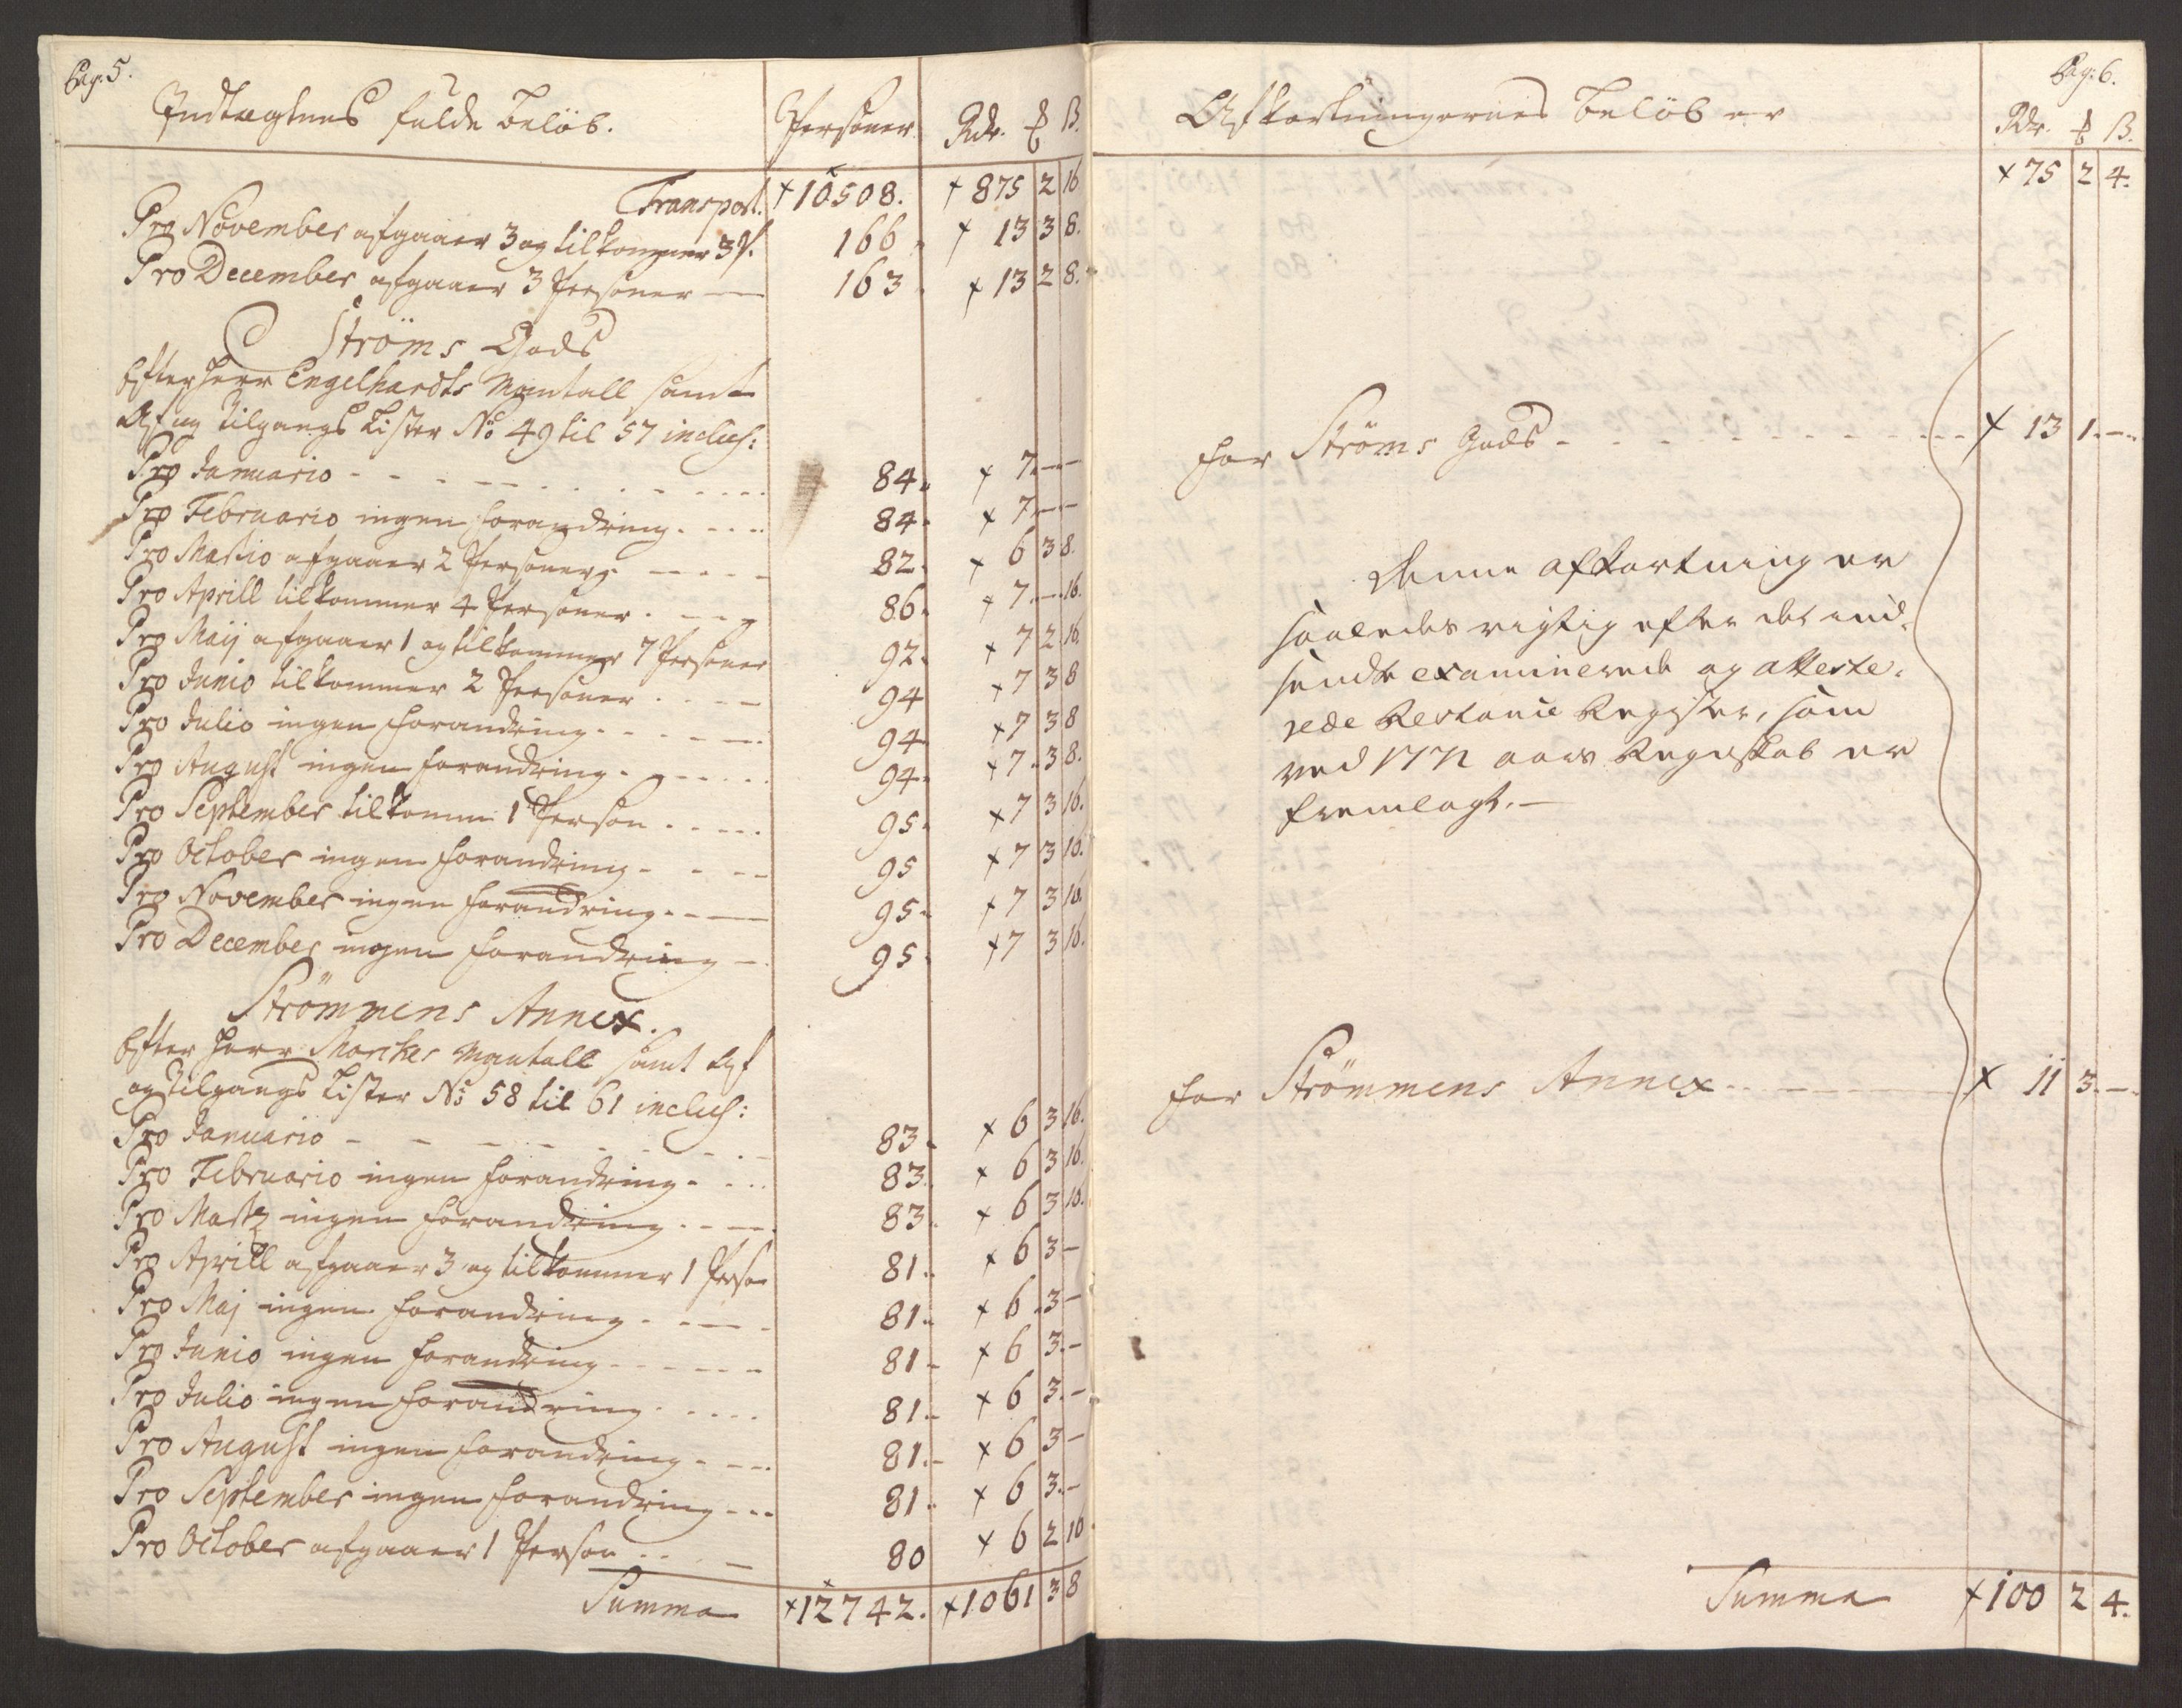 Pag: 5.
Indtægtens fulde beløb. Personer. Rdr. ß.
Transport. 10508. 875 2 16
Pro November afgaaer 3 og tilkommer 3 P. 166 13 3 8.
Pro December afgaaer 3 Personer 163 13 2 8.
Ströms Gods
Efter Herr Engelhardts Mantall samt
Af og tilgangs Lister No 49 til 57 inclus:
Pro Januario 84. 7. — —
Pro Februario ingen forandring 84. 7. — —
Pro Martio afgaaer 2 Personer 82. 6 3 8.
Pro Aprill tilkommer 4 Personer 86. 7. — 16.
Pro Maij afgaaer 1 og tilkommer 7 Personer 92. 7 2 16.
Pro Junio tilkommer 2 Personer 94 7 3 8
Pro Julio ingen forandring 94. 7 3 8
Pro August ingen forandring 94. 7. 3 8.
Pro September tilkomm 1 Person 95. 7 3 16.
Pro October ingen forandring 95 7 3 16.
Pro November ingen forandring 95. 7 3 16.
Pro December ingen forandring 95. 7 3 16.
Strömmens Annex.
Efter Herr Morches Mantall samt Af
og tilgangs Lister No 58 til 61 inclus:
Pro Januario 83. 6 3 16.
Pro Februario ingen forandring 83. 6 3 16.
Pro Martz ingen forandring 83. 6 3 16.
Pro Aprill afgaaer 3 og tilkommer 1 Person 81. 6 3 —
Pro Maj ingen forandring 81. 6. 3 —
Pro Junio ingen forandring 81 6 3. —
Pro Julio ingen forandring 81. 6 3. —
Pro August ingen forandring 81. 6 3 —
Pro September ingen forandring 81. 6 3. —
Pro October afgaaer 1 Person 80 6 2 16
Summa 12742. 1061 3 8
Pag: 6.
Afkortningernes beløb er Rdr. ß.
75 2 4.
for Ströms Gods 13 1. —
Denne afkortning er
saaledes rigtig efter det ind-
sendte examinerede og atteste-
rede Restance Register, som
ved 1772 aars Regnskab er
fremlagt. —
for Strömmens Annex 11 3. —
Summa 100 2 4.